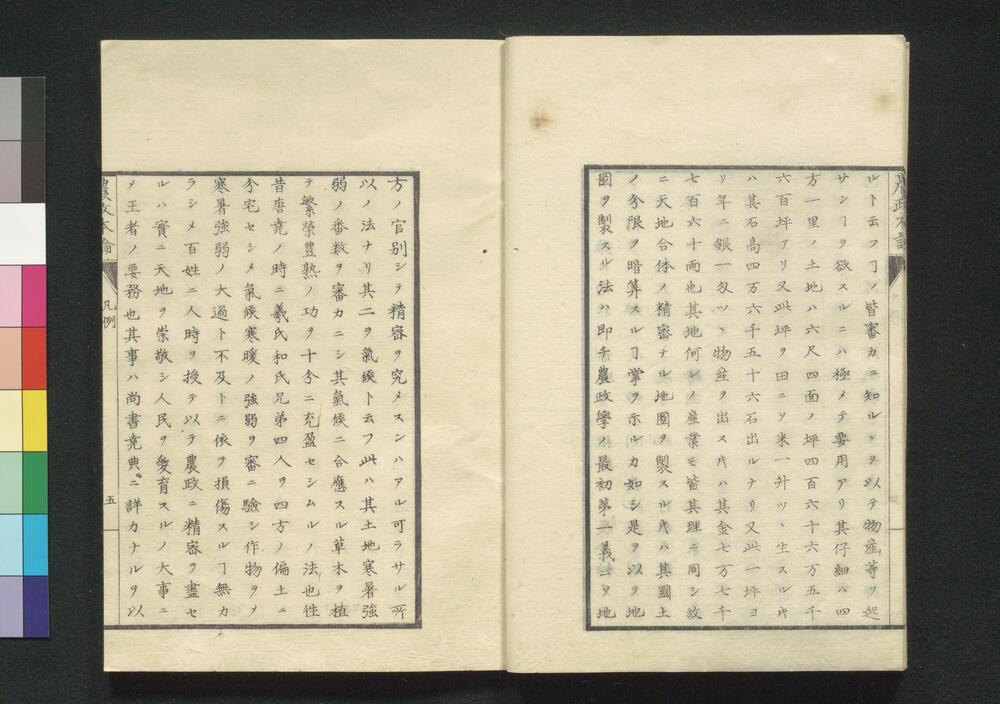 ルト云フヿノ皆審カニ知ルヽヲ以テ物産等ヲ起
サンヿヲ欲スルニハ極メテ要用アリ其仔細ハ四
方一里ノ土地ハ六尺四面ノ坪四百六十六万五千
六百坪アリ又此坪ヲ田ニシ米一升ツヽ生スル𪜈
ハ其石高四万六千五十六石出ルナリ又此一坪ヨ
リ年ニ銀一匁ツヽ物産ヲ出ス𪜈ハ其金七万七千
七百六十両也其地何レノ産業モ皆其理ニ同シ故
ニ天地合体ノ精密ナル地圖ヲ製スル𪜈ハ其國土
ノ分限ヲ暗算スルヿ掌ヲ示ルカ如シ是ヲ以ヲ地
圖ヲ製スル法ハ即チ農政學ノ最初第一義ニヲ地
方ノ官別シテ精密ヲ究メスンハアル可ラサル所
以ノ法ナリ其二ヲ氣候ト云フ此ハ其土地寒暑強
弱ノ番数ヲ審カニシ其氣候ニ合應スル草木ヲ植
テ繁榮豊熟ノ功ヲ十分ニ充盈セシムルノ法也徃
昔唐堯ノ時ニ羲氏和氏兄弟四人ヲ四方ノ偏土ニ
分宅セシメ氣候寒暖ノ強弱ヲ審ニ驗シ作物ヲメ
寒暑強弱ノ大過ト不及トニ依テ損傷スルヿ無カ
ラシメ百姓ニ人時ヲ授テ以テ農政ニ精密ヲ盡セ
ルハ實ニ天地ヲ崇敬シ人民ヲ愛育スルノ大事ニ
メ王者ノ要務也其事ハ尚書堯典ニ詳カナルヲ以
農政本論
凡例
五